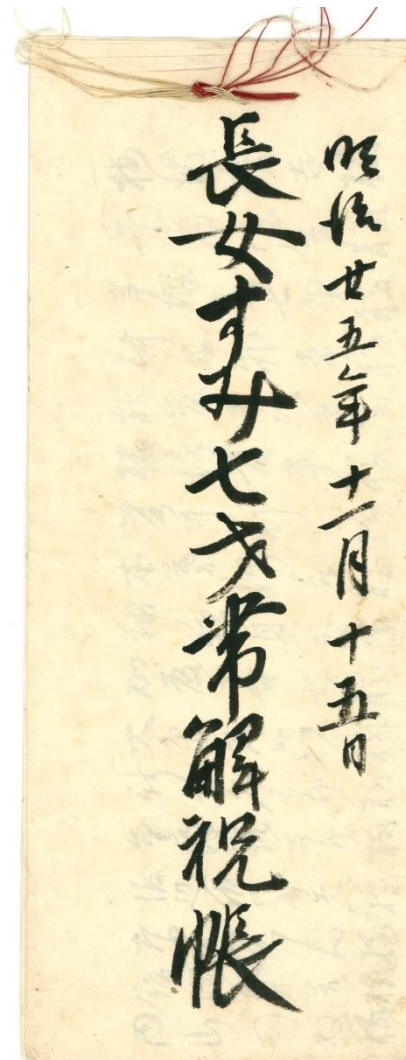 明治廿五年十一月十五日
長女すみ七才帯解祝帳